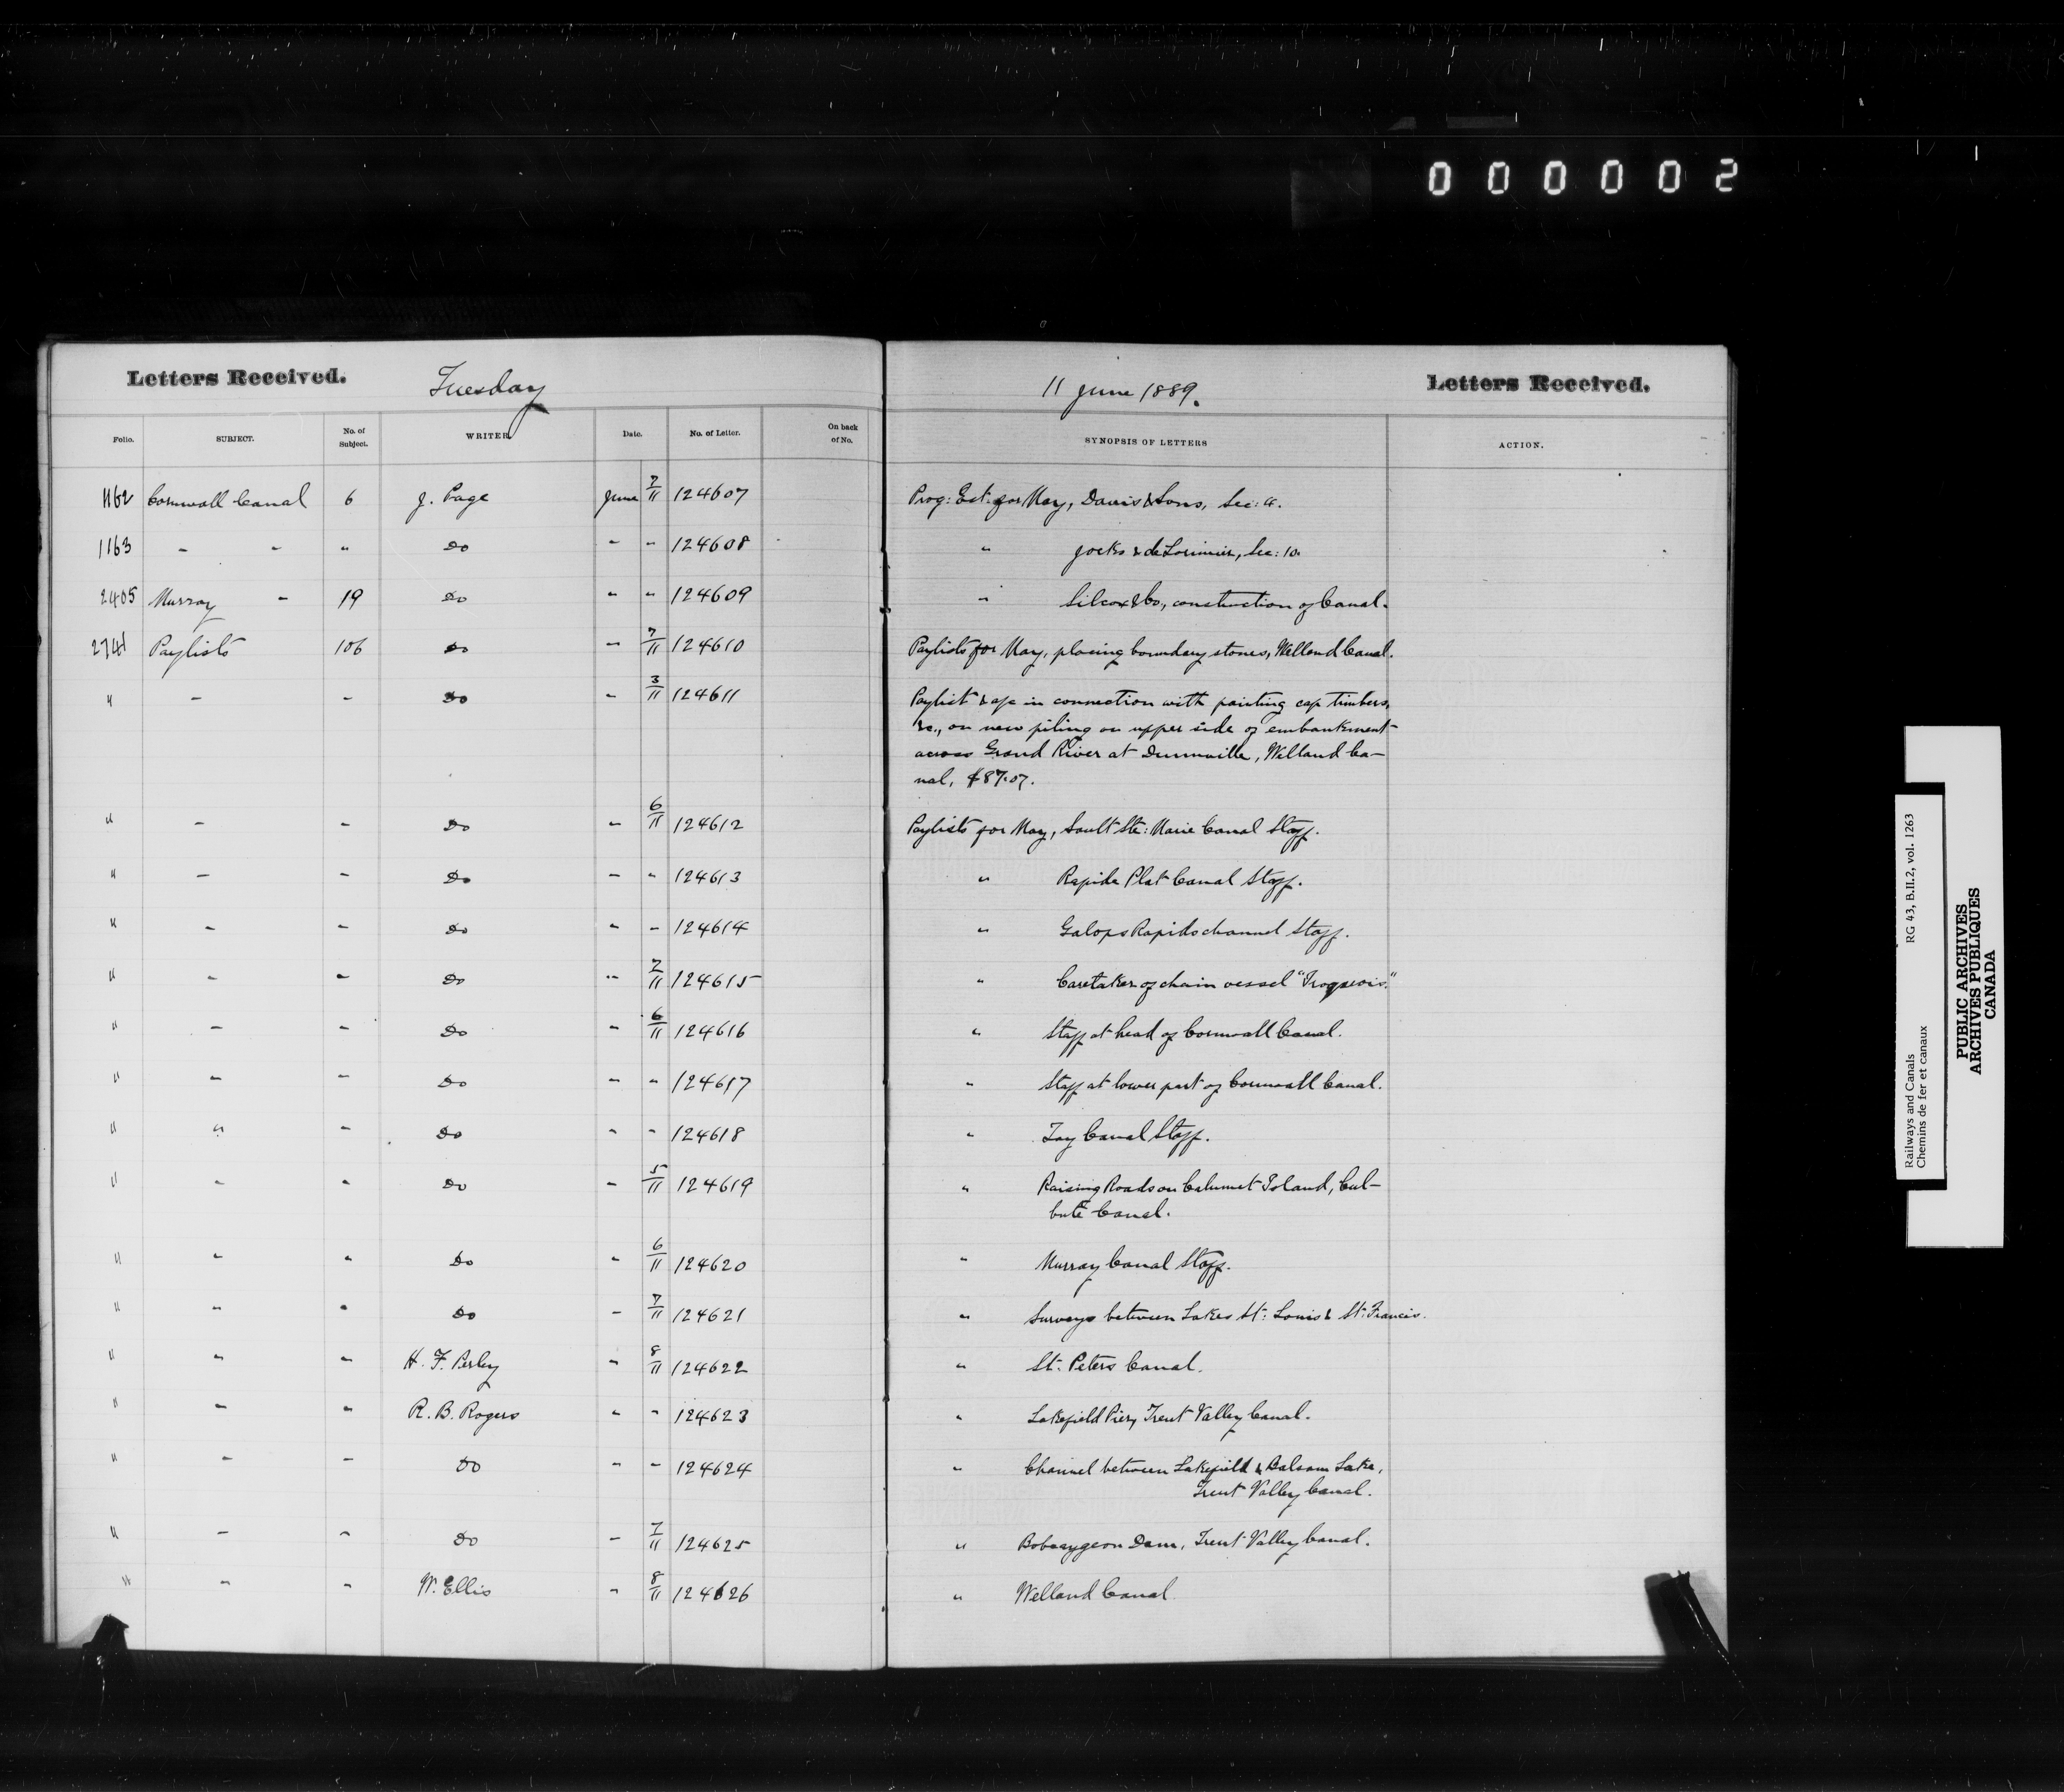 0 0 0 0 0 2
Letters Received. Tuesday 11 June 1889. Letters Received.
Folio. SUBJECT. No. of Subject. WRITER Date. No. of Letter. On back of No. SYNOPSIS OF LETTERS ACTION.
1162 Cornwall Canal 6 J. Page June 7/11 124607 Prog: Est. for May, Davis & Sons, Sec: A.
1163 " " " Do " " 124608 " Jocks & de Lorimier, Sec: 10.
2405 Murray " 19 Do " " 124609 " Silcox & Co., construction of Canal.
2741 Paylists 106 Do " 7/11 124610 Paylists for May, placing boundary stones, Welland Canal.
" " " Do " 3/11 124611 Paylist & a/c in connection with painting cap timbers,
&c., on new piling on upper side of embankment
across Grand River at Dunnville, Welland Ca-
nal, $87.07.
" " " Do " 6/11 124612 Paylists for May, Sault Ste: Marie Canal Staff.
" " " Do " " 124613 " Rapide Plat Canal Staff.
" " " Do " " 124614 " Galops Rapids channel Staff.
" " " Do " 7/11 124615 " Caretaker of chain vessel "Iroquois."
" " " Do " 6/11 124616 " Staff at head of Cornwall Canal.
" " " Do " " 124617 " Staff at lower part of Cornwall Canal.
" " " Do " " 124618 " Tay Canal Staff.
" " " Do " 5/11 124619 " Raising Roads on Calumet Island, Cul-
bute Canal.
" " " Do " 6/11 124620 " Murray Canal Staff.
" " " Do " 7/11 124621 " Surveys between Lakes St: Louis & St: Francis.
" " " H. F. Perley " 8/11 124622 " St. Peters Canal.
" " " R. B. Rogers " " 124623 " Lakefield Pier, Trent Valley Canal.
" " " Do " " 124624 " Channel between Lakefield & Balsam Lake,
Trent Valley Canal.
" " " Do " 7/11 124625 " Bobcaygeon Dam, Trent Valley Canal.
" " " W. Ellis " 8/11 124626 " Welland Canal
Railways and Canals RG 43, B.II.2, vol. 1263
Chemins de fer et canaux
PUBLIC ARCHIVES
ARCHIVES PUBLIQUES
CANADA